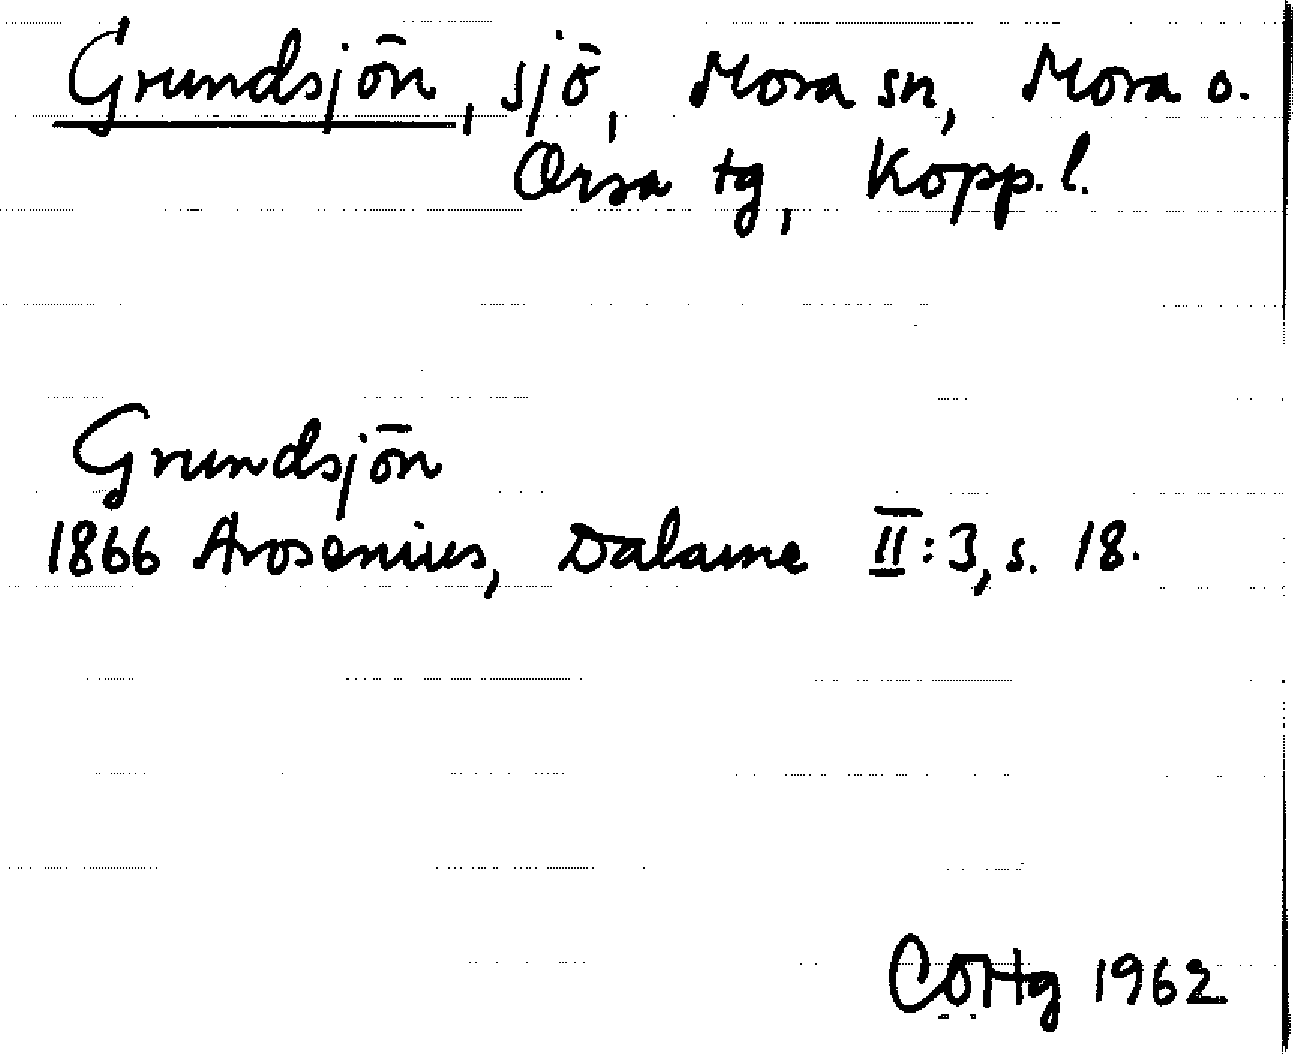 Grundsjön, sjö, Mora sn, Mora o.
Orsa tg, Kopp. l.
Grundsjön
1866 Arosenius, Dalarne II:3, s. 18.
1962